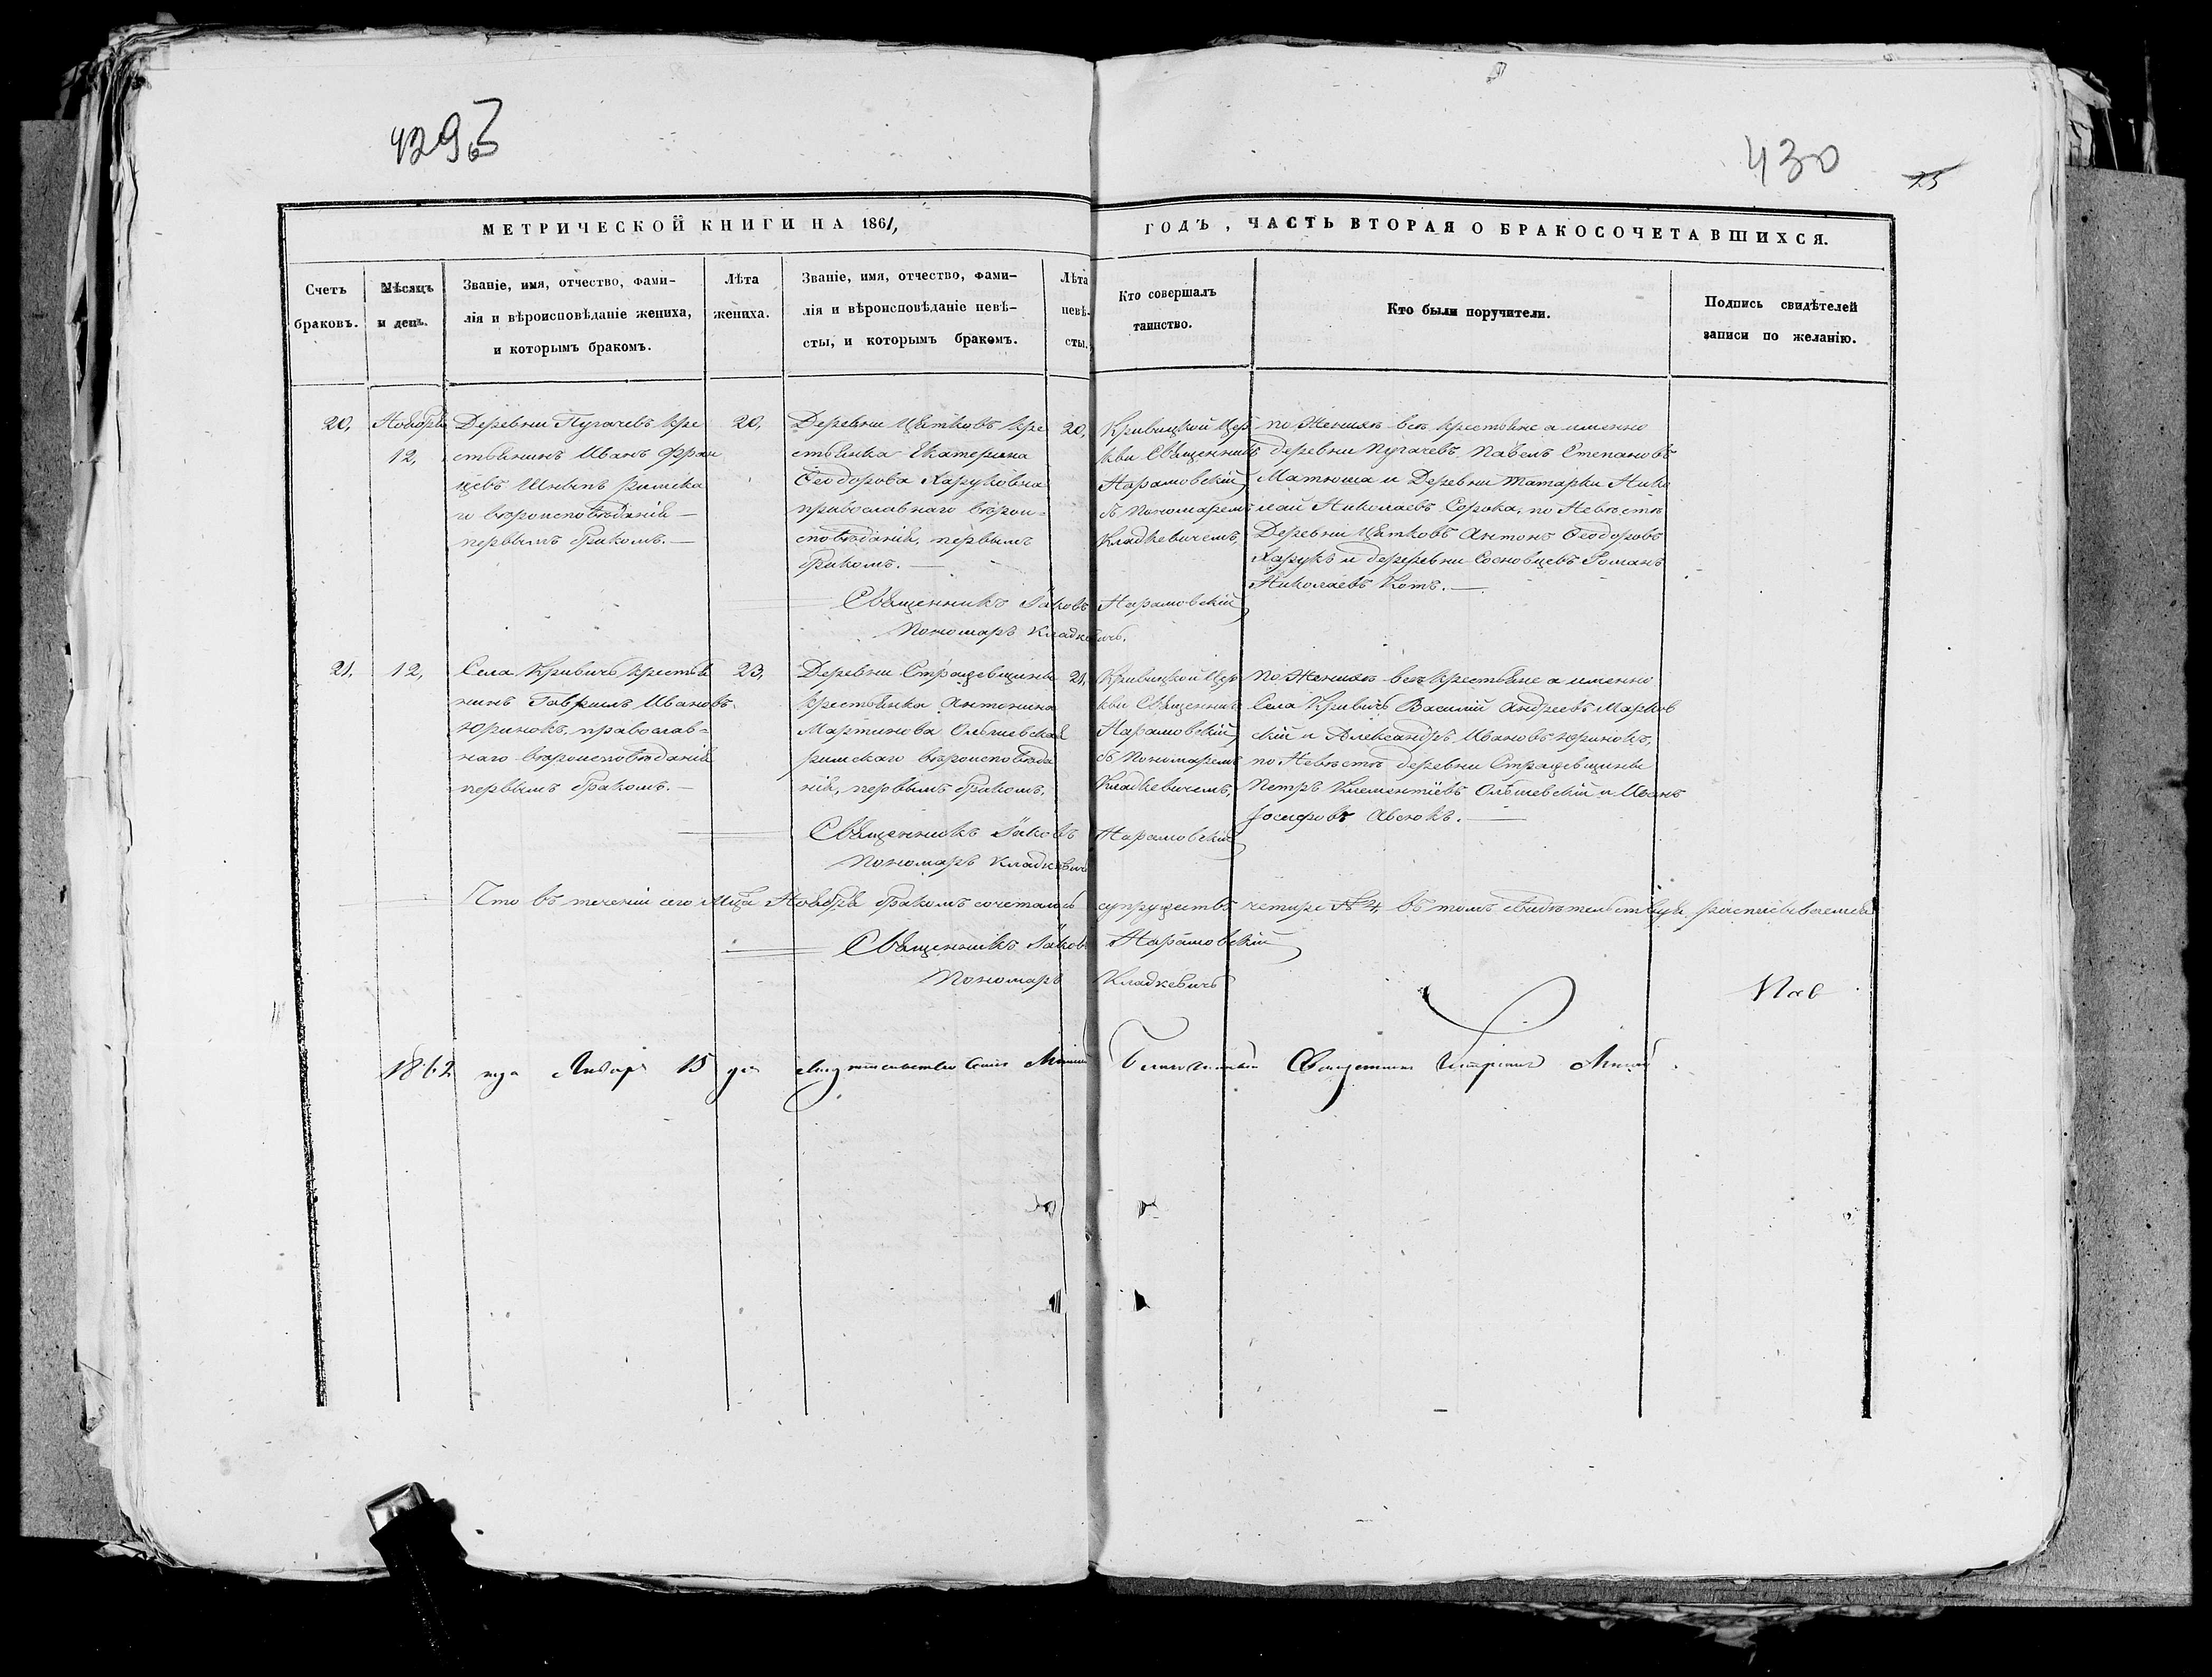 429б
430
15
МЕТРИЧЕСКОЙ КНИГИ НА 1861,
ГОДЪ, ЧАСТЬ ВТОРАЯ О БРАКОСОЧЕТАВШИХСЯ.
Счетъ
браковъ.
Мѣсяцъ
и день.
Званіе, имя, отчество, фами-
лія и вѣроисповѣданіе жениха,
и которымъ бракомъ.
Лѣта
жениха.
Званіе, имя, отчество, фами-
лія и вѣроисповѣданіе невѣ-
сты, и которымъ бракомъ.
Лѣта
невѣ-
сты.
Кто совершалъ
таинство.
Кто были поручители.
Подпись свидѣтелей
записи по желанію.
20,
Ноября
12,
Деревни Пугачевъ кре
стьянинъ Иванъ
римска
го вѣроисповѣданія —
первымъ бракомъ. —
20,
Деревни Цятковъ кре
стьянка Екатерина
Ѳеодорова Харуковна
православнаго вѣрои-
сповѣданія, первымъ
бракомъ. —
20,
Кривицкой Цер
кви Священникъ
Нарамовскій
съ Пономаремъ
Кладкевичемъ,
по Женихѣ всѣ крестьяне а именно
деревни Пугачевъ Павелъ Степановъ
Матюша и Деревни Татарки Нико
лай Николаевъ Сорока, по Невѣстѣ
Деревни Цятковъ Антонъ Ѳеодоровъ
Харукъ и дереревни Сосновцевъ Романъ
Николаевъ Котъ. —
Священникъ Іаковъ Нарамовскій
Пономарь Кладкевичъ.
21,
12,
Села Кривичъ крестья
нинъ Гавріилъ Ивановъ
Юринокъ, православ-
наго вѣроисповѣданія
первымъ бракомъ. —
23,
Деревни Страдевщины
крестьянка Антонина
Мартинова Ольшевская
римскаго вѣроисповѣда
нія, первымъ бракомъ.
21,
Кривицкой Цер
кви Священникъ
Нарамовскій
съ Пономаремъ
Кладкевичемъ,
по Женихѣ всѣ крестьяне а именно
Села Кривичъ Василій Андреевъ Марков
скій и Александръ Ивановъ Юринокъ,
по Невѣстѣ деревни Страдевщины
Петръ Климентіевъ Ольшевскій и Иванъ
Іосифовъ Авсюкъ. —
Священникъ Іаковъ Нарамовскій
Пономарь Кладкевичъ
Что въ теченіи сего Мца Ноября бракомъ сочеталось супружествъ четыре № 4, въ томъ свидѣтельствуя росписываемся
Священникъ Іаковъ Нарамовскій
Пономарь Кладкевичъ
1862 года Января 15 дня Священникъ